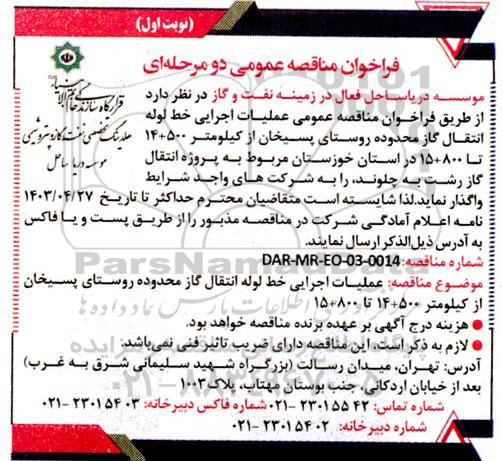 (نوبت اول)
فراخوان مناقصه عمومی دو مرحله‌ای
قرارگاه سازندگی خاتم الانبیاء
هلدینگ تخصصی نفت گاز و پتروشیمی
موسسه دریا ساحل
موسسه دریاساحل فعال در زمینه نفت و گاز در نظر دارد
از طریق فراخوان مناقصه عمومی عملیات اجرایی خط لوله
انتقال گاز محدوده روستای پسیخان از کیلومتر ۵۰۰+۱۴
تا ۸۰۰+۱۵ در استان خوزستان مربوط به پروژه انتقال
گاز رشت به چلوند، را به شرکت های واجد شرایط
واگذار نماید.لذا شایسته است متقاضیان محترم حداکثر تا تاریخ ۱۴۰۳/۰۴/۲۷
نامه اعلام آمادگی شرکت در مناقصه مذبور را از طریق پست و یا فاکس
به آدرس ذیل‌الذکر ارسال نمایند.
شماره مناقصه: DAR-MR-EO-03-0014
موضوع مناقصه: عملیات اجرایی خط لوله انتقال گاز محدوده روستای پسیخان
از کیلومتر ۵۰۰+۱۴ تا ۸۰۰+۱۵
● هزینه درج آگهی بر عهده برنده مناقصه خواهد بود.
● لازم به ذکر است این مناقصه دارای ضریب تاثیر فنی نمی‌باشد.
آدرس: تهران، میدان رسالت (بزرگراه شهید سلیمانی شرق به غرب)
بعد از خیابان اردکانی، جنب بوستان مهتاب، پلاک ۱۰۰۳
شماره تماس: ۴۲ ۵۵ ۲۳۰۱ -۰۲۱ شماره فاکس دبیرخانه: ۰۳ ۵۴ ۲۳۰۱ -۰۲۱
شماره دبیرخانه: ۰۲ ۵۴ ۲۳۰۱ -۰۲۱
ParsNamadData